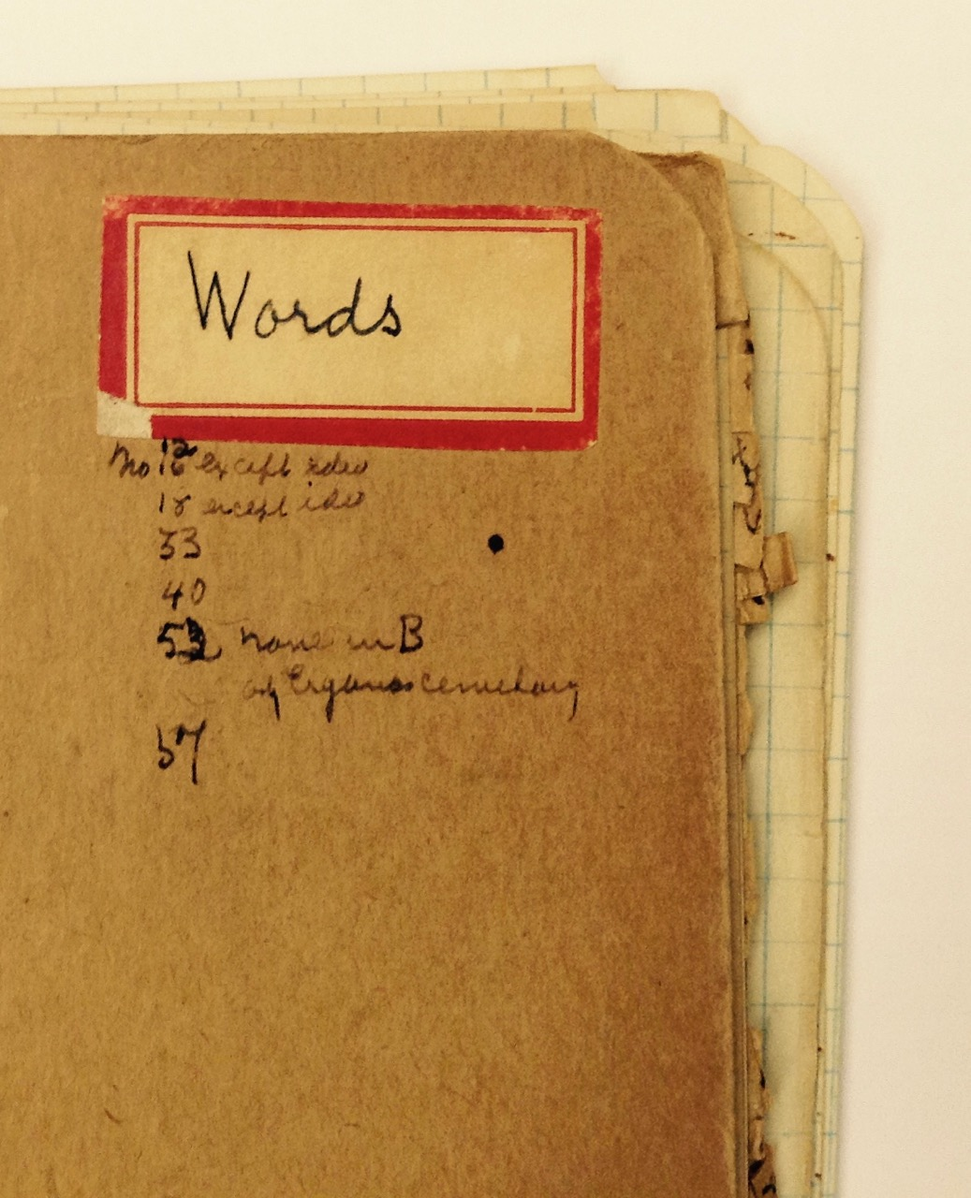 Words
No 12 except ideo
18 except ideo
33
40
53 none in B
cemetary
57